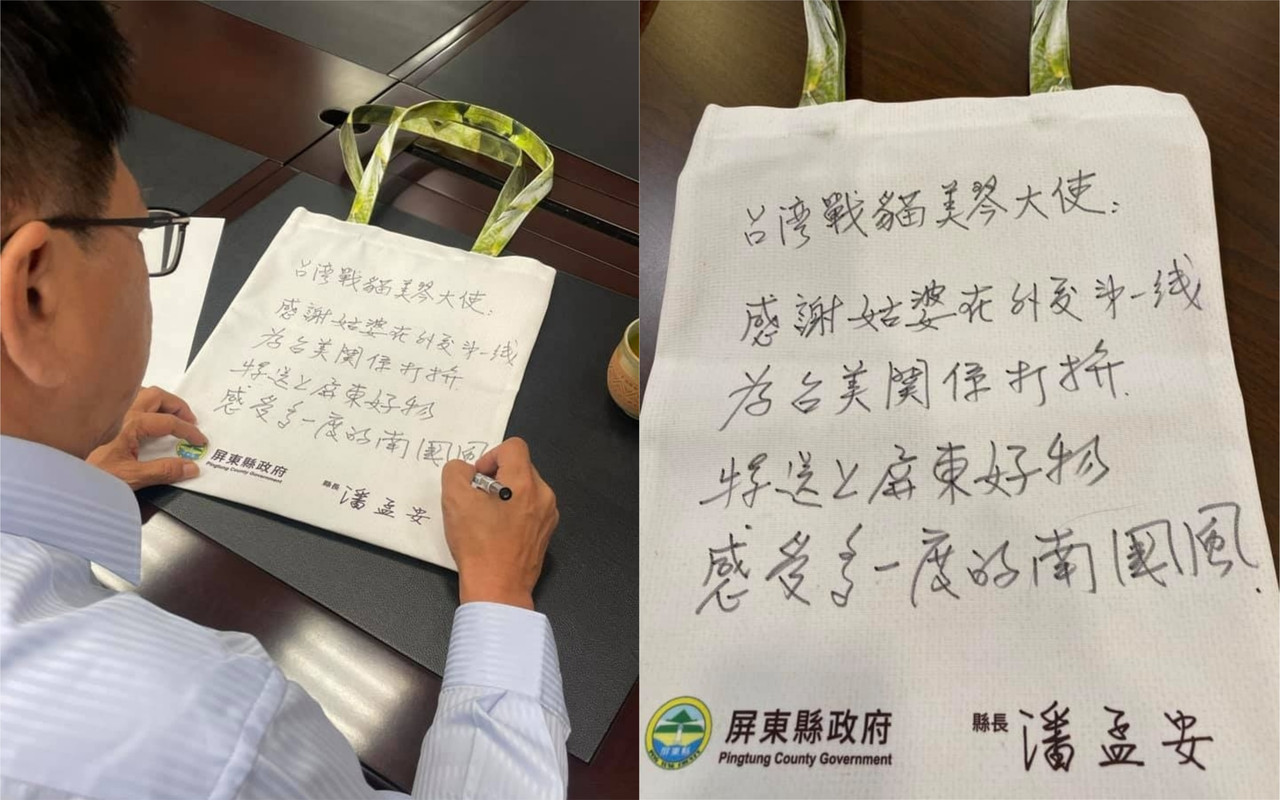 台湾戰貓美琴大使:
感謝姑婆在外交第一线
为台美関係打拚
特送上屏東好物
感受多一度的南國風
屏東縣政府
Pingtung County Government
縣長 潘孟安
台湾戰貓美琴大使:
感謝姑婆在外交第一线
为台美関係打拚.
特送上屏東好物
感受多一度的南國風.
屏東縣
屏東縣政府
Pingtung County Government
縣長 潘孟安